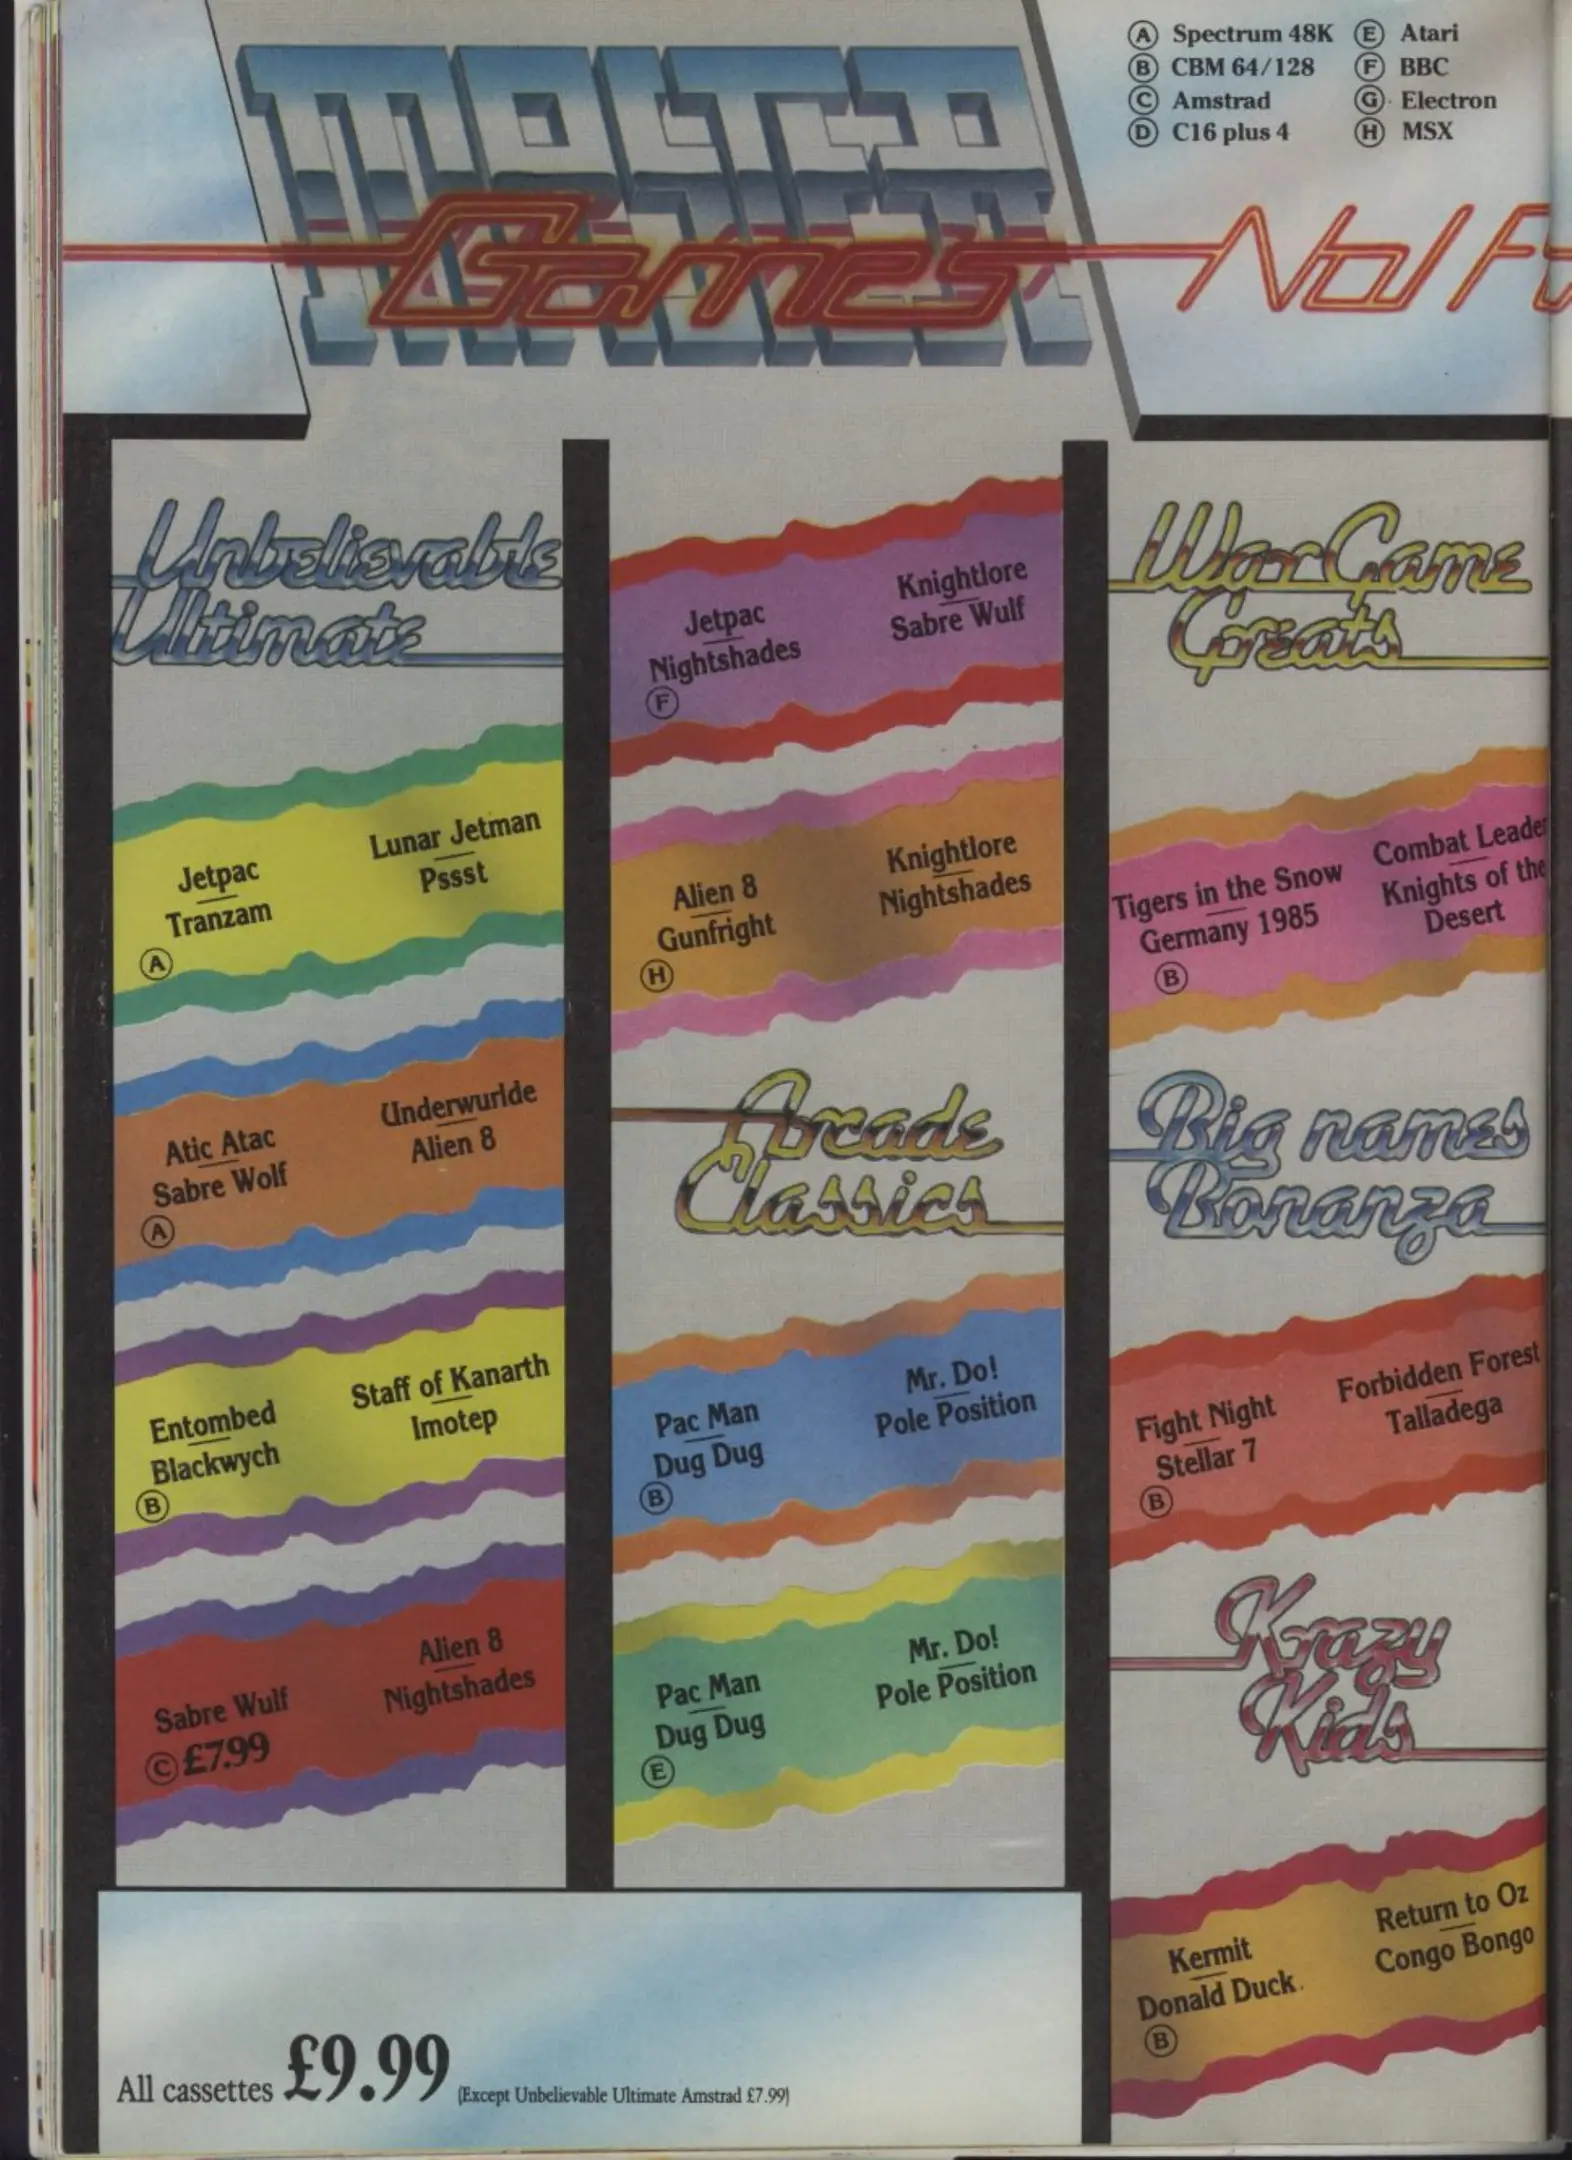 Ⓐ Spectrum 48K Ⓔ Atari
Ⓑ CBM 64/128 Ⓕ BBC
Ⓒ Amstrad Ⓖ Electron
Ⓓ C16 plus 4 Ⓗ MSX
Games
Unbelievable
Ultimate
Jetpac
Tranzam
Lunar Jetman
Pssst
Ⓐ
Atic Atac
Sabre Wolf
Underwurlde
Alien 8
Ⓐ
Entombed
Blackwych
Staff of Kanarth
Imotep
Ⓑ
Sabre Wulf
Alien 8
Nightshades
Ⓒ £7.99
Jetpac
Nightshades
Knightlore
Sabre Wulf
Ⓕ
Alien 8
Gunfright
Knightlore
Nightshades
Ⓗ
Arcade
Classics
Pac Man
Dug Dug
Mr. Do!
Pole Position
Ⓑ
Pac Man
Dug Dug
Mr. Do!
Pole Position
Ⓔ
War Game
Greats
Tigers in the Snow
Germany 1985
Combat Leade
Knights of the
Desert
Ⓑ
Big names
Bonanza
Fight Night
Stellar 7
Forbidden Forest
Talladega
Ⓑ
Krazy
Kids
Kermit
Donald Duck
Return to Oz
Congo Bongo
Ⓑ
All cassettes £9.99 (Except Unbelievable Ultimate Amstrad £7.99)